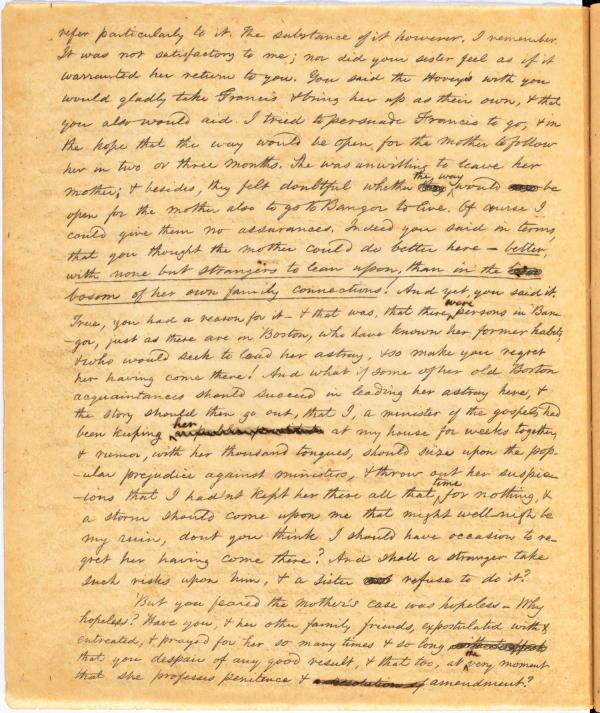 refer particularly to it. The substance of it however, I remember.
It was not satisfactory to me; nor did your sister feel as if it
warranted her return to you. You said the Hovey's with you
would gladly take Francis & bring her up as their own, & that
you also would aid. I tried to persuade Francis to go, & in
the hope that the way would be open, for the mother to follow
her in two or three months. She was unwilling to leave her
mother; & besides, they felt doubtful whether the way would be
open for the mother also to go to Bangor to live. Of course I
could give them no assurances. Indeed you said in terms,
that you thought the mother could do better here – better,
with none but strangers to lean upon, than in the
bosom of her own family connections! And yet, you said it.
True, you had a reason for it – & that was, that there were persons in Ban-
-gor, just as there are in Boston, who have known her former habits,
& who would seek to lead her astray, & so make you regret
her having come there! And what if some of her old Boston
acquaintances should succeed in leading her astray here, &
the story should then go out, that I, a minister of the gospel, had
been keeping her at my house for weeks together,
& rumor, with her thousand tongues, should seize upon the pop-
-ular prejudice against ministers, & throw out her suspic-
-ions that I had'nt kept her there all that time for nothing, &
a storm should come upon me that might well-nigh be
my ruin, dont you think I should have occasion to re-
gret her having come there? And shall a stranger take
such risks upon him, & a sister refuse to do it?
But you feared the mother's case was hopeless – Why
hopeless? Have you, & her other family friends, expostulated with &
entreated, & prayed for her so many times & so long
that you despair of any good result, & that too, at the very moment
that she professes penitence & amendment?